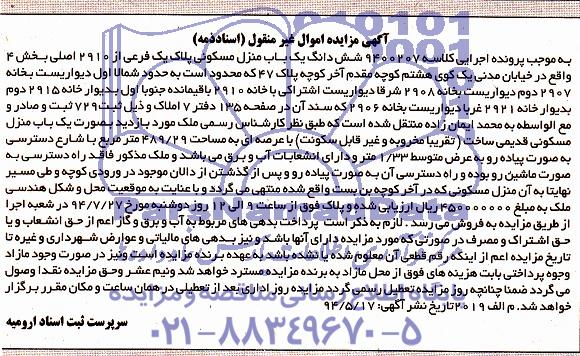 آگهی مزایده اموال غیر منقول (اسنادذمه)
به موجب پرونده اجرایی کلاسه ۹۴۰۰۲۰۷ شش دانگ یک باب منزل مسکونی پلاک یک فرعی از ۲۹۱۰ اصلی بخش ۴
واقع در خیابان مدنی یک کوی هشتم کوچه مقدم آخر کوچه پلاک ۴۷ که محدود است به حدود شمالا اول دیواریست بخانه
۲۹۰۷ دوم دیواریست بخانه ۲۹۰۸ شرقا دیواریست اشتراکی با خانه ۲۹۱۰ باقیمانده جنوبا اول بدیوار خانه ۲۹۱۵ دوم
بدیوار خانه ۲۹۲۱ غربا دیواریست بخانه ۲۹۰۶ که سند آن در صفحه ۱۳۵ دفتر ۷ املاک و ذیل ثبت ۷۲۹ ثبت و صادر و
مع الواسطه به محمد ایمان زاده منتقل شده است که طبق نظر کارشناس رسمی ملک مورد بازدید بصورت یک باب منزل
مسکونی قدیمی ساخت ( تقریبا مخروبه و غیر قابل سکونت) با عرصه ای به مساحت ۴۸۹/۲۹ متر مربع با شارع دسترسی
به صورت پیاده رو به عرض متوسط ۱/۳۳ متر و دارای انشعابات آب و برق می باشد و ملک مذکور فاقد راه دسترسی به
صورت ماشین رو بوده و راه دسترسی آن به صورت پیاده رو و پس از گذشتن از دالان موجود در ورودی کوچه و طی مسیر
نهایتا به آن منزل مسکونی که در آخر کوچه بن بست واقع شده منتهی می گردد و با عنایت به موقعیت محل و شکل هندسی
ملک به مبلغ ۴۵۰۰۰۰۰۰۰۰ ریال ارزیابی شده و پلاک فوق از ساعت ۹ الی ۱۲ روز دوشنبه مورخ ۹۴/۷/۲۷ در شعبه اجرا
از طریق مزایده به فروش می رسد . لازم به ذکر است پرداخت بدهی های مربوط به آب و برق و گاز اعم از حق انشعاب و یا
حق اشتراک و مصرف در صورتی که مورد مزایده دارای آنها باشد و نیز بدهی های مالیاتی و عوارض شهرداری و غیره تا
تاریخ مزایده اعم از اینکه رقم قطعی آن معلوم شده یا نشده باشد به عهده برنده مزایده است و نیز در صورت وجود مازاد
وجوه پرداختی بابت هزینه های فوق از محل مازاد به برنده مزایده مسترد خواهد شد ونیم عشر وحق مزایده نقدا وصول
می گردد ضمنا چنانچه روز مزایده تعطیل رسمی گردد مزایده روز اداری بعد از تعطیلی در همان ساعت و مکان مقرر برگزار
خواهد شد. م الف ۲۰۱۹ تاریخ نشر آگهی: ۹۴/۵/۱۷
سرپرست ثبت اسناد ارومیه
ParsNamadData
پایگاه اطلاع رسانی مناقصه و مزایده
۰۲۱-۸۸۳۴۹۶۷۰-۵